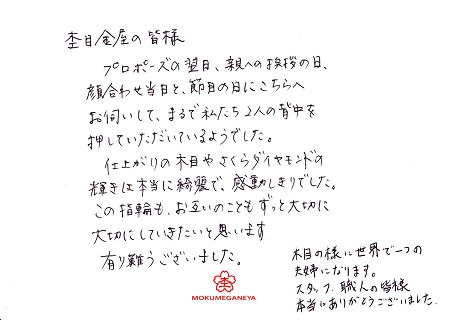 杢目金屋の皆様
プロポーズの翌日、親への挨拶の日、
顔合わせ当日と、節目の日にこちらへ
お伺いして、まるで私たち2人の背中を
押していただいているようでした。
仕上がりの木目やさくらダイヤモンドの
輝きは本当に綺麗で、感動しきりでした。
この指輪も、お互いのこともずっと大切に
大切にしていきたいと思います
有り難うございました。
木目の様に世界で一つの
夫婦になります。
スタッフ、職人の皆様
本当にありがとうございました。
MOKUMEGANEYA